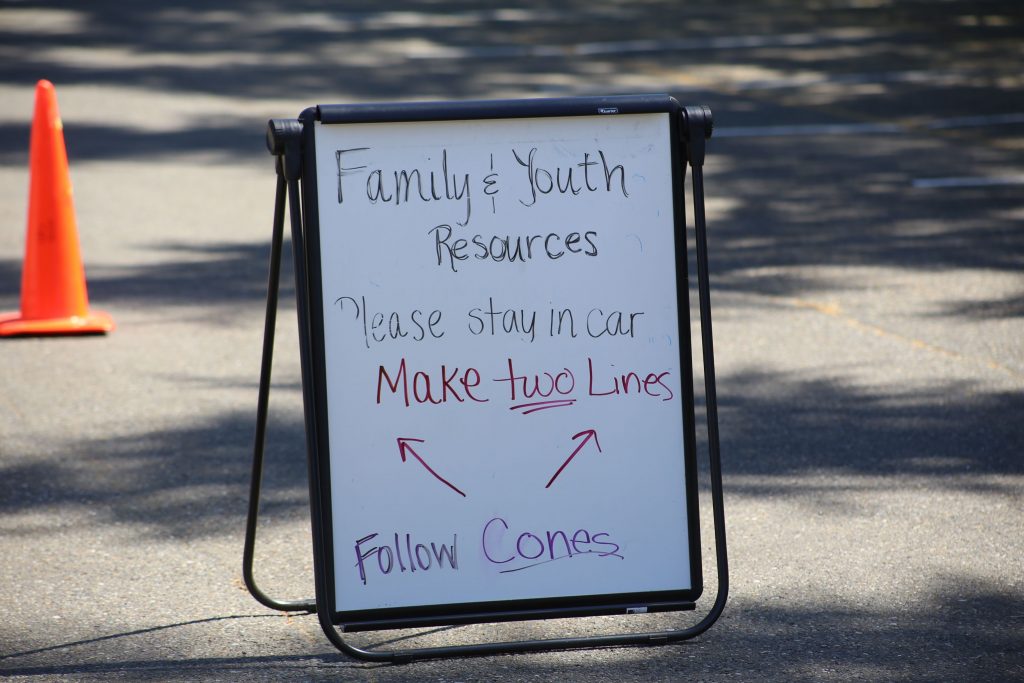 Family & Youth
Resources
Please stay in car
Make two Lines
Follow Cones